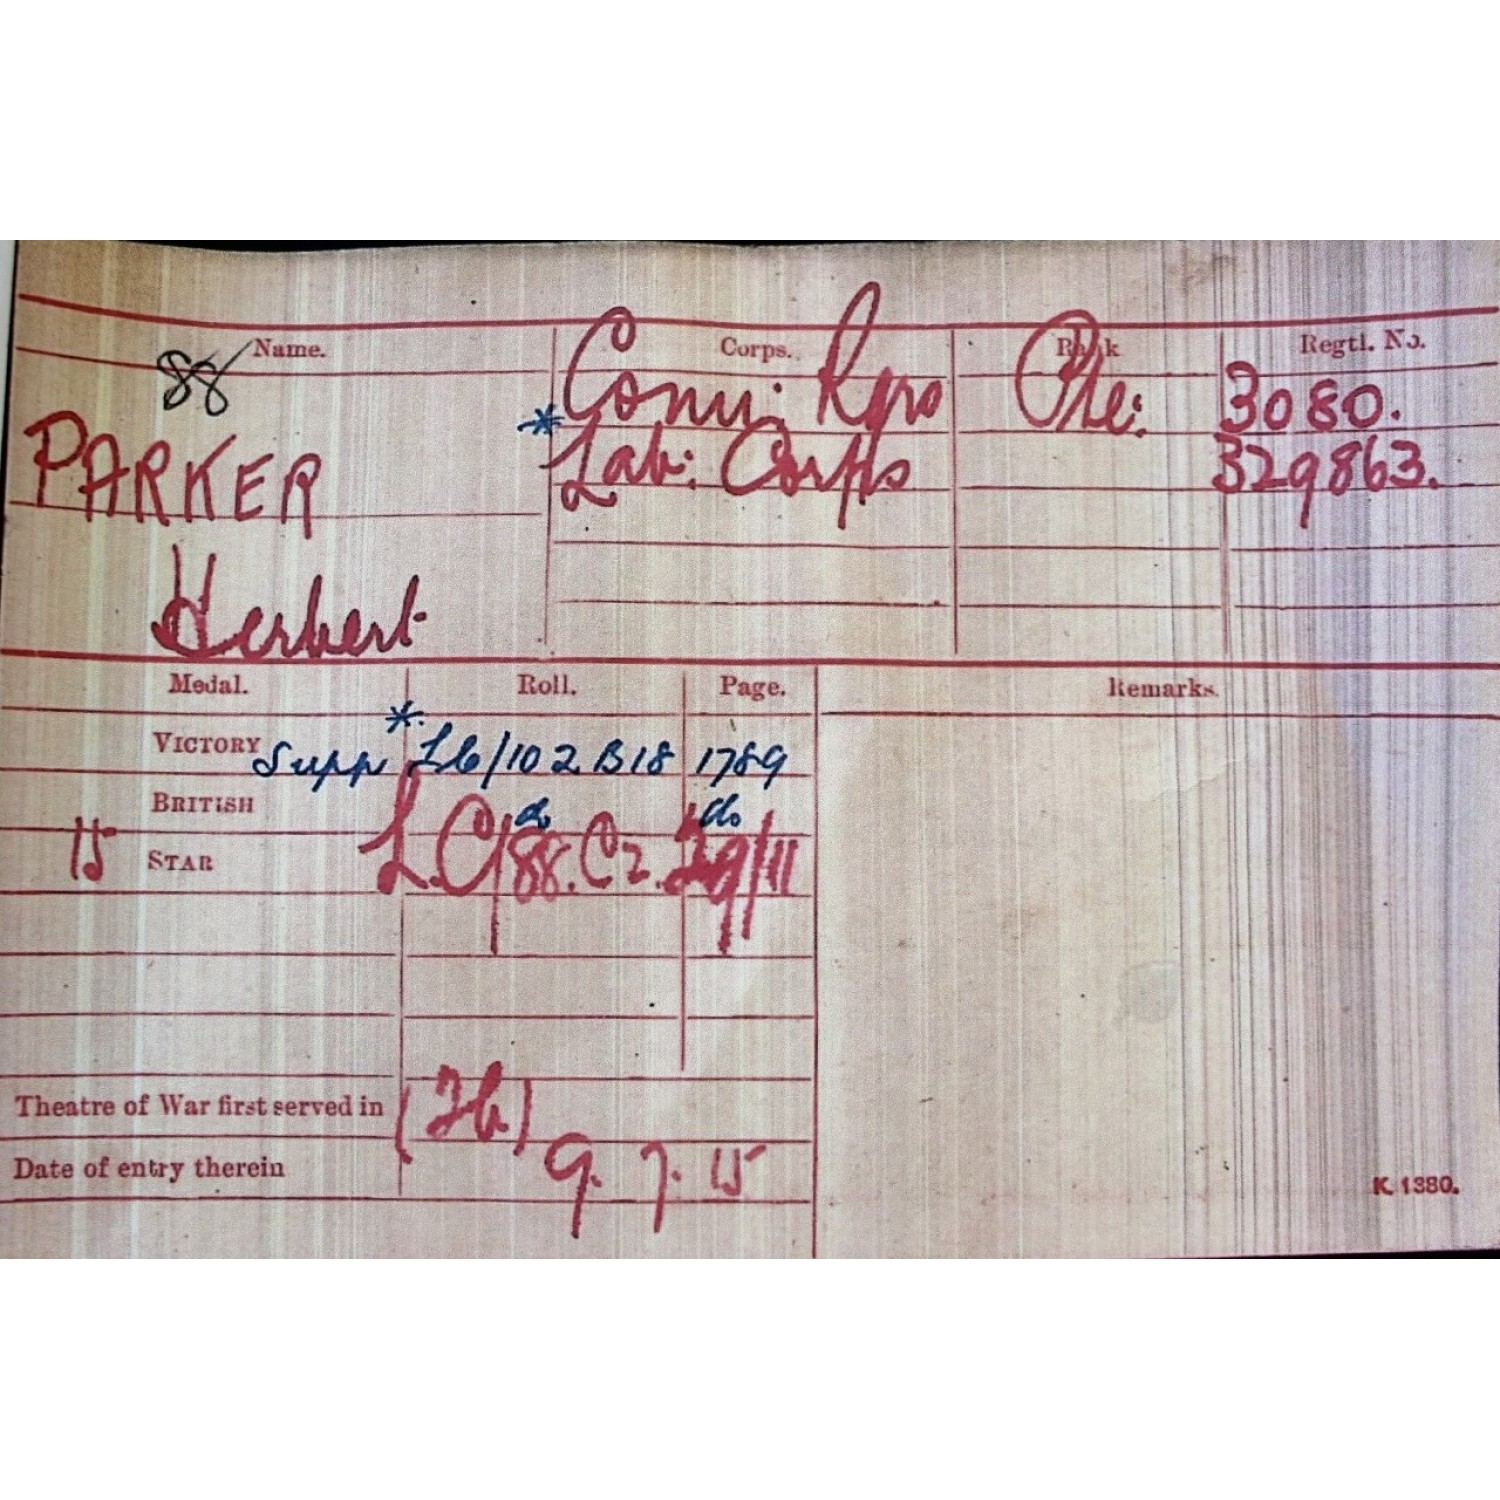 Name. Corps. Rank Regtl. No.
88
PARKER
Herbert
Conn: Rgrs Pte: 3080.
* Lab: Corps 329863.
Medal. Roll. Page. Remarks.
VICTORY Supp * Lb/102 B18 1789
BRITISH do do
15 STAR L.C/88.C2. 29/11
Theatre of War first served in (2b)
Date of entry therein 9. 7. 15
K. 1380.